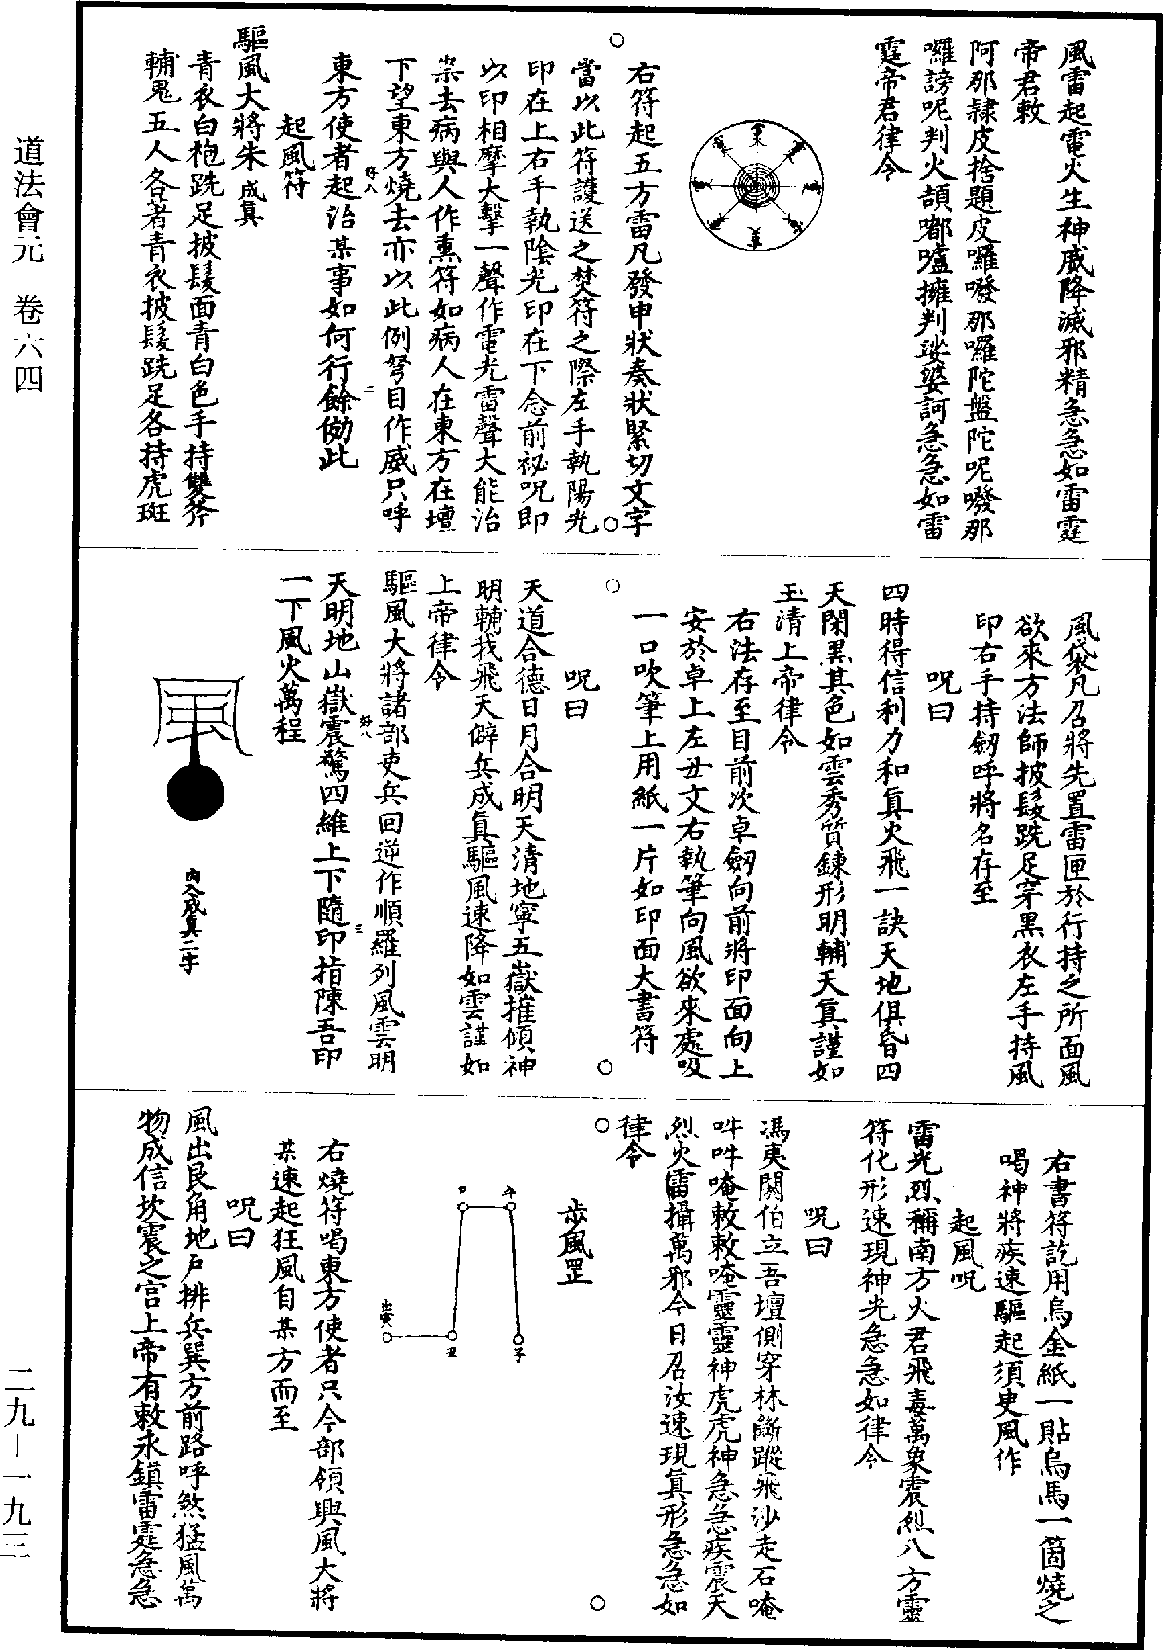 道法會元　卷六四
二九—一九三
風雷起電火生神威降滅邪精急急如雷霆
帝君敕
阿那隸皮捨題皮囉㗶那囉陀盤陀呢㗶那
囉謗呢判火頡嘟嚧擁判娑婆訶急急如雷
霆帝君律令
右符起五方雷凡發申狀奏狀緊切文字
當以此符護送之焚符之際左手執陽光
印在上右手執陰光印在下念前祕呪即
以印相摩大擊一聲作電光雷聲大能治
祟去病與人作熏符如病人在東方在壇
下望東方燒去亦以此例弩目作威只呼
東方使者起治某事如何行餘倣此
起風符
驅風大將朱成真
青衣白袍跣足披髮面青白色手持雙斧
輔鬼五人各著青衣披髮跣足各持虎斑
風袋凡召將先置雷匣於行持之所面風
欲來方法師披髮跣足穿黑衣左手持風
印右手持劒呼將名存至
呪曰
四時得信利力和真火飛一訣天地俱昏四
天閉黑其色如雲秀質鍊形明輔天真謹如
玉清上帝律令
右法存至目前次卓劒向前將印面向上
安於卓上左丑文右執筆向風欲來處吸
一口吹筆上用紙一片如印面大書符
呪曰
天道合德日月合明天清地寧五嶽摧傾神
明輔我飛天僻兵成真驅風速降如雲謹如
上帝律令
驅風大將諸部吏兵回逆作順羅列風雲明
天明地山嶽震驚四維上下隨印指陳吾印
一下風火萬程
內入成真二字
右書符訖用烏金紙一貼烏馬一箇燒之
喝神將疾速驅起須臾風作
起風呪
雷光烈稱南方火君飛毒萬象震烈八方靈
符化形速現神光急急如律令
呪曰
馮夷閼伯立吾壇側穿林斷蹤飛沙走石唵
吽吽唵敕敕唵靈靈神虎虎神急急疾震天
烈火雷攝萬邪今日召汝速現真形急急如
律令
步風罡
右燒符喝東方使者只今部領興風大將
某速起狂風自某方而至
呪曰
風出艮角地戶排兵巽方前路呼煞猛風萬
物成信坎震之宮上帝有敕永鎮雷霆急急